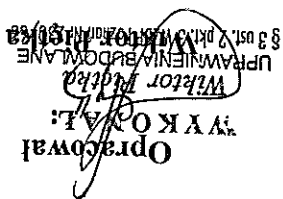 Opracował
WYKONAŁ:
Wiktor Piątka
UPRAWNIENIA BUDOWLANE
Wiktor Piątka
§ 3 ust. 2 pkt.